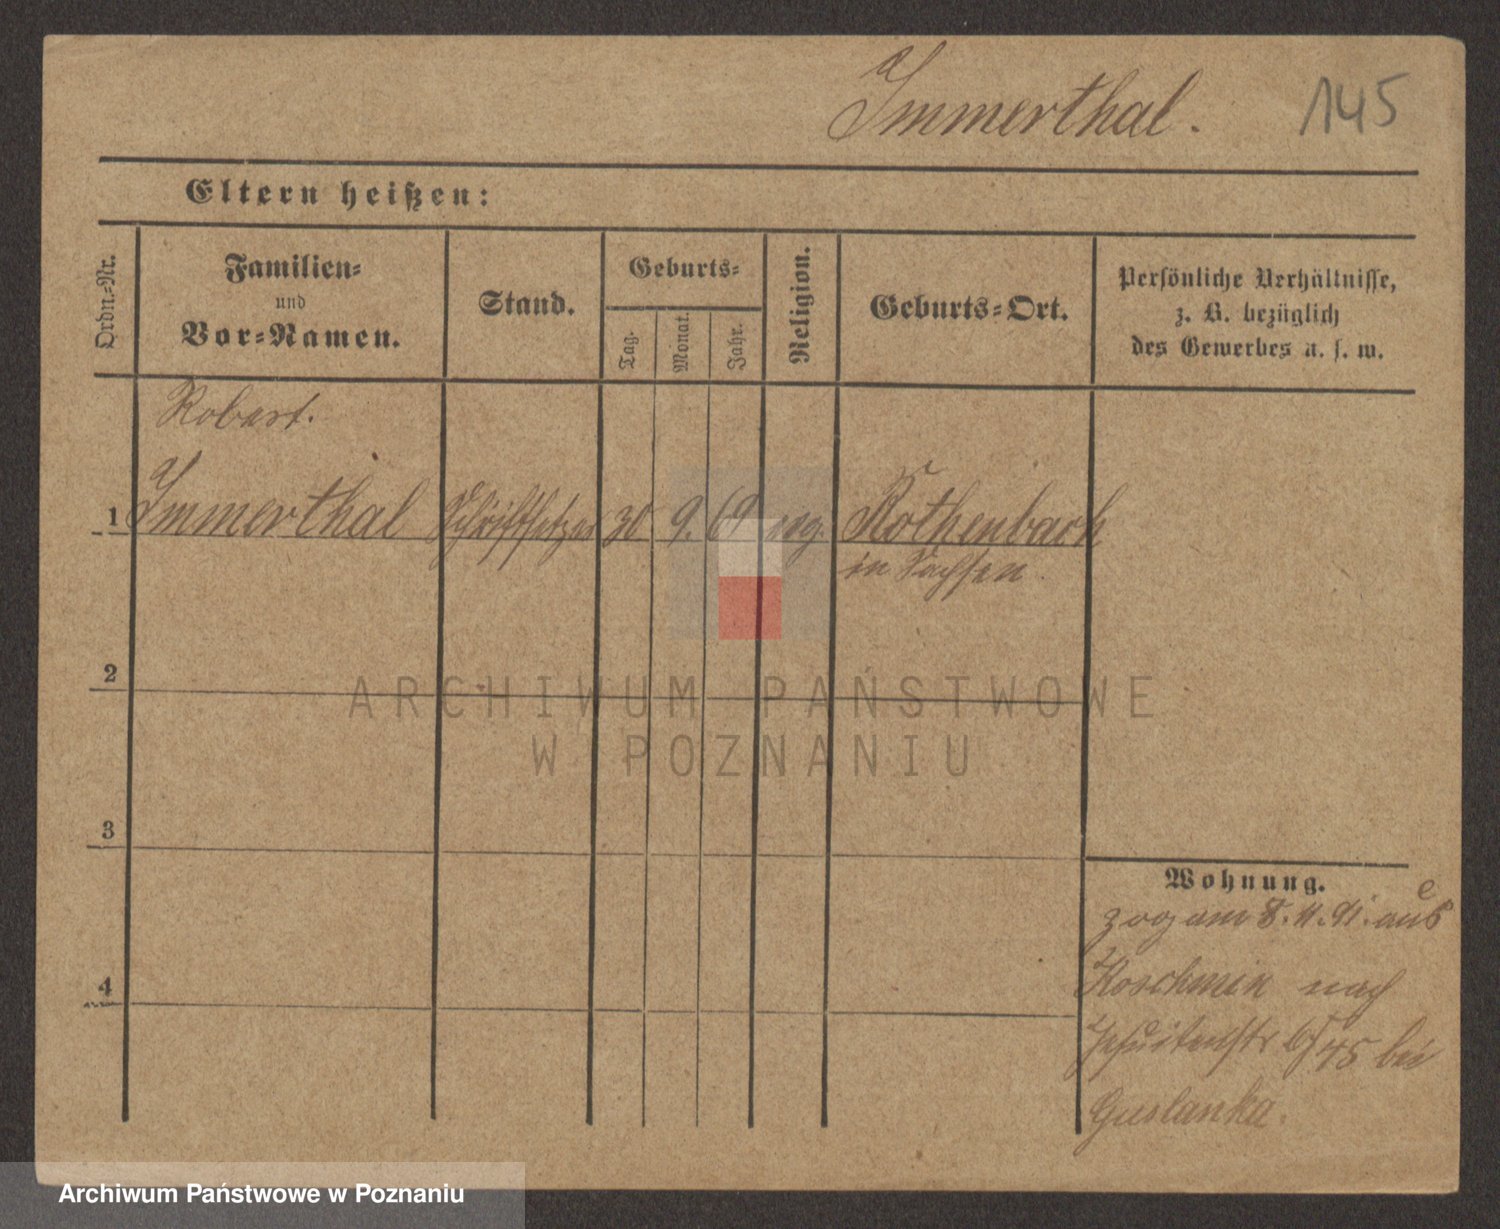 Immerthal. 145
Eltern heißen:
Ordn.-Nr.
Familien-
und
Vor-Namen.
Stand.
Geburts-
Tag.
Monat.
Jahr.
Religion.
Geburts-Ort.
Persönliche Verhältnisse,
z. B. bezüglich
des Gewerbes u. s. w.
Robert.
1 Immerthal Schriftsetzer 30 9. 69 evg. Rothenbach
in Sachsen
2
3
4
Wohnung.
zog am 8. 11. 91. aus
Koschmin nach
Jesuitenstr bei
Guslanka.
ARCHIWUM PAŃSTWOWE
W POZNANIU
Archiwum Państwowe w Poznaniu